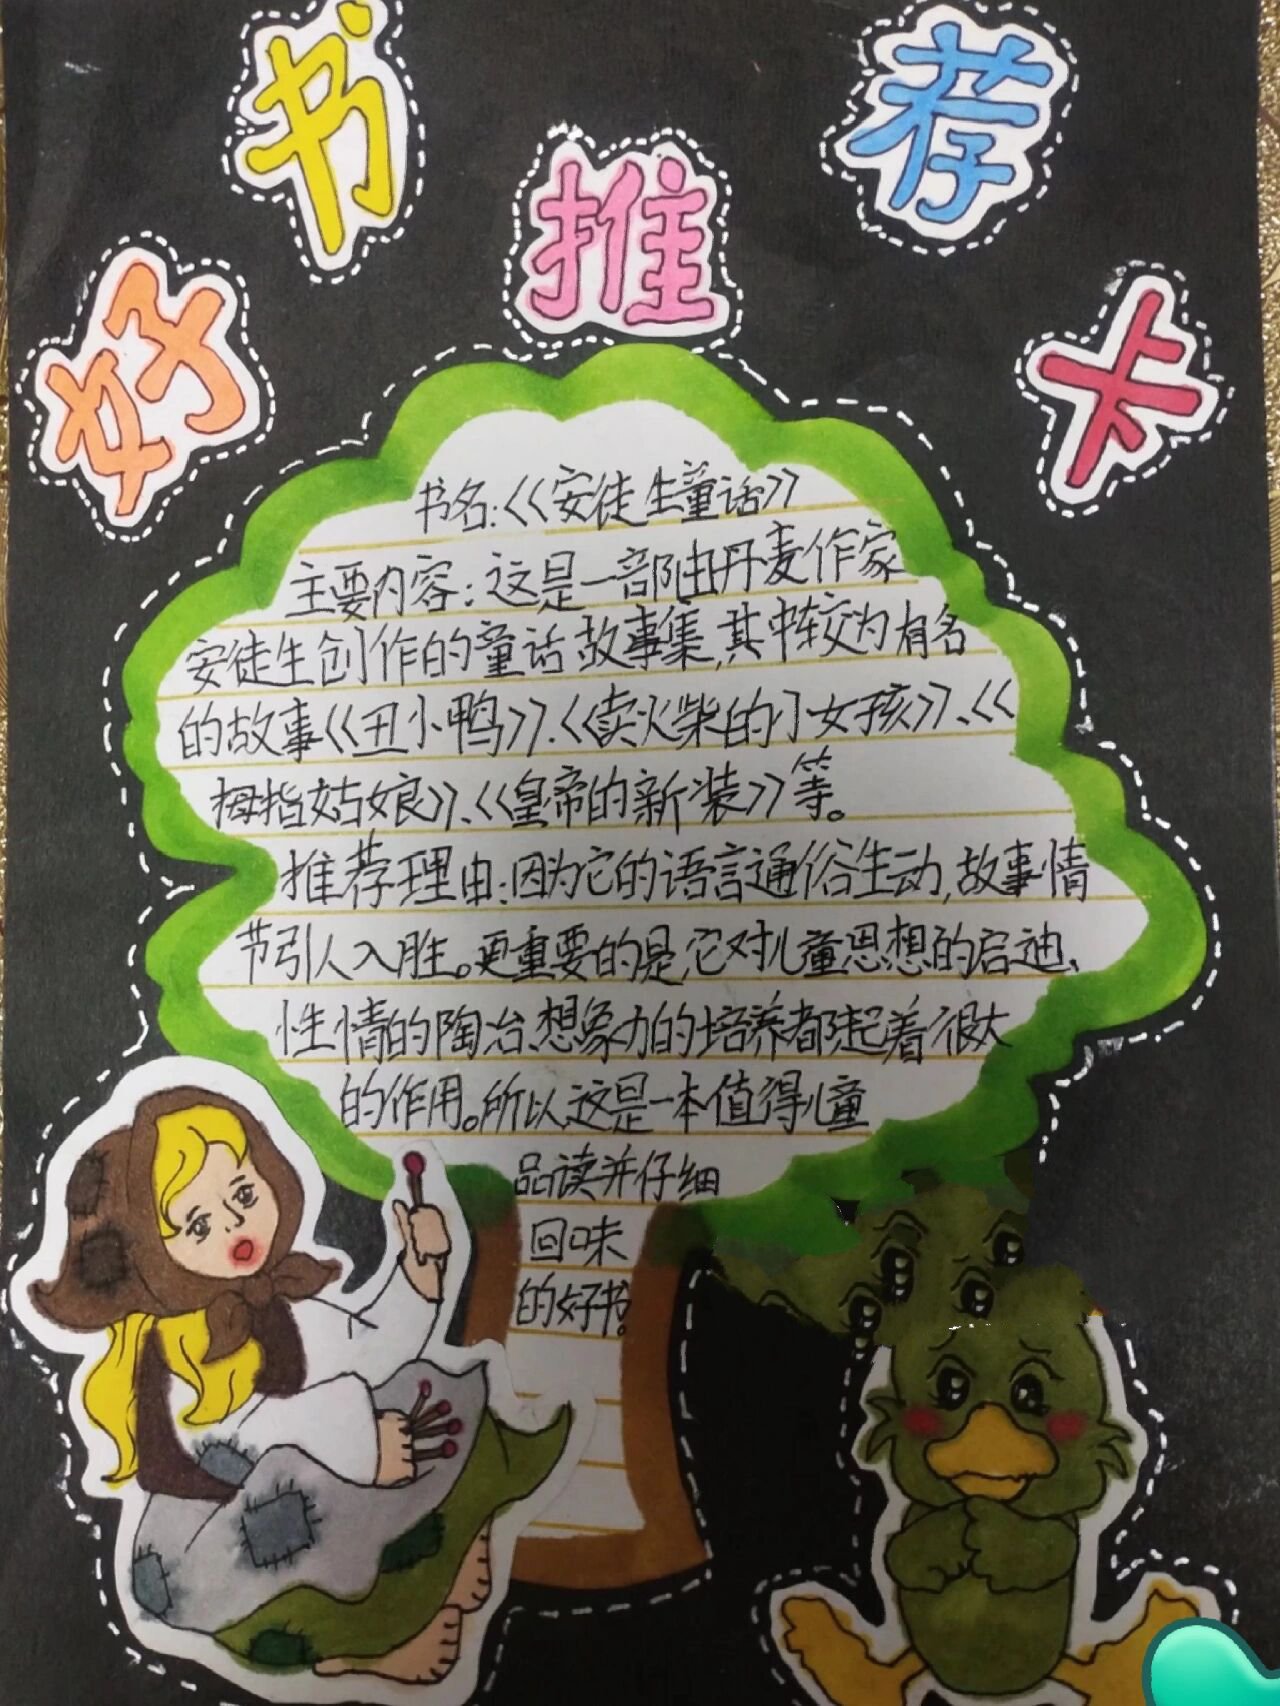 好书推荐卡
书名:《安徒生童话》
主要内容:这是一部由丹麦作家
安徒生创作的童话故事集,其中较为有名
的故事《丑小鸭》、《卖火柴的小女孩》、《
拇指姑娘》、《皇帝的新装》等。
推荐理由:因为它的语言通俗生动,故事情
节引人入胜。更重要的是,它对儿童思想的启迪、
性情的陶冶、想象力的培养都起着很大
的作用。所以,这是一本值得儿童
品读并仔细
回味
的好书。